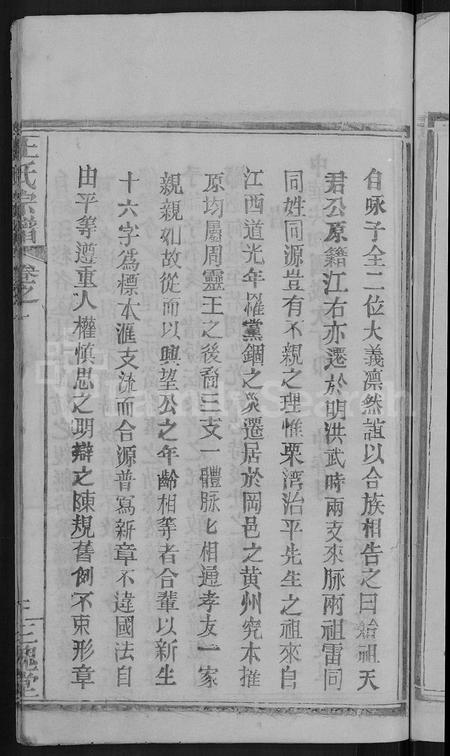 自咏子全二位大義凛然誼以合族相告之曰始祖天
君公原籍江右亦遷於明洪武時兩支來脉兩祖雷同
同姓同源豈有不親之理惟栗湾治平先生之祖來自
江西道光年罹黨錮之災遷居於岡邑之黄州究本推
原均屬周靈王之後裔三支一體脉匕相通孝友一家
親親如故從而以興望公之年齡相等者合輩以新生
十六字爲標本滙支流而合源普寫新章不違國法自
由平等遵重人權慎思之明辯之陳規舊例不束形章
王氏宗譜
卷之一
三槐堂
FamilySearch